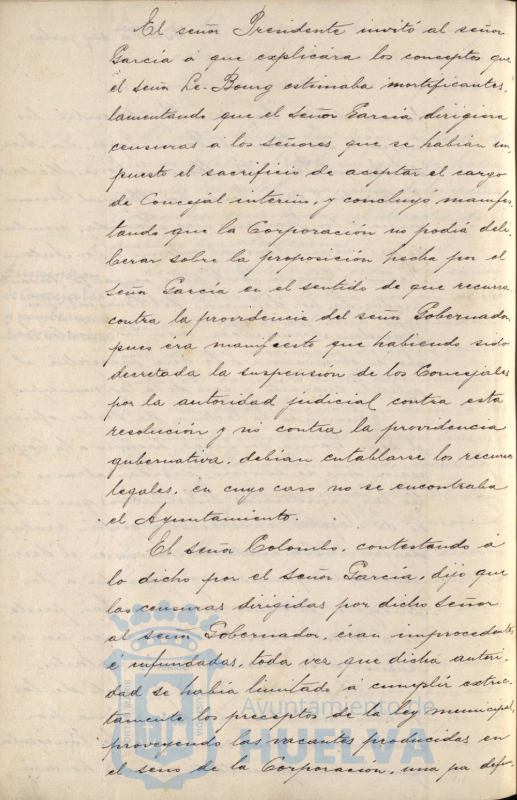 El señor Presidente invitó al señor
García á que explicára los conceptos que
el señor Le-Bourg estimaba mortificantes,
lamentando que el señor García dirigiera
censuras á los señores que se habían im-
puesto el sacrificio de aceptar el cargo
de Concejal interino, y concluyó manifes-
tando que la Corporación no podía deli-
berar sobre la proposición hecha por el
señor García en el sentido de que recurra
contra la providencia del señor Gobernador,
pues éra manifiesto que habiendo sido
decretada la suspensión de los Concejales
por la autoridad judicial contra esta
resolución y nó contra la providencia
gubernativa, debían entablarse los recursos
legales, en cuyo caso no se encontraba
el Ayuntamiento.
El señor Colombo, contestando á
lo dicho por el señor García, dijo que
las censuras dirigidas por dicho señor
al señor Gobernador, éran improcedentes
é infundadas, toda vez que dicha autori-
dad se había limitado á cumplir extric-
tamente los preceptos de la ley municipal,
proveyendo las vacantes producidas en
el seno de la Corporación, una pa defun-
Ayuntamiento de
HUELVA